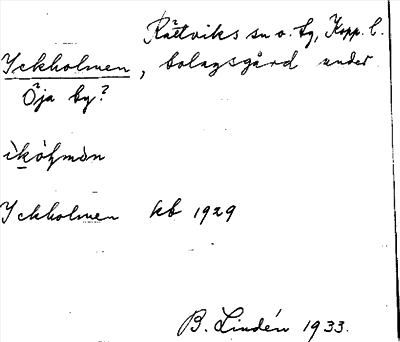 Rättviks sn o. tg, Kopp. l.
Yckholmen, bolagsgård under
Öja by?
ìkòʃmàn
Yckholmen kb 1929
B. Lindén 1933.